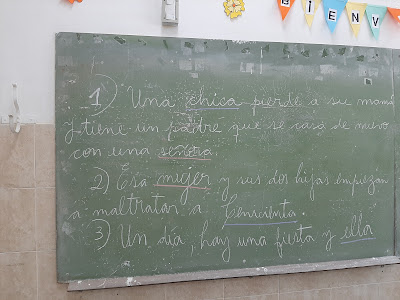 BIENV
1) Una chica pierde a su mamá
y tiene un padre que se casa de nuevo
con una señora.
2) Esa mujer y sus dos hijas empiezan
a maltratar a Cenicienta.
3) Un día, hay una fiesta y ella